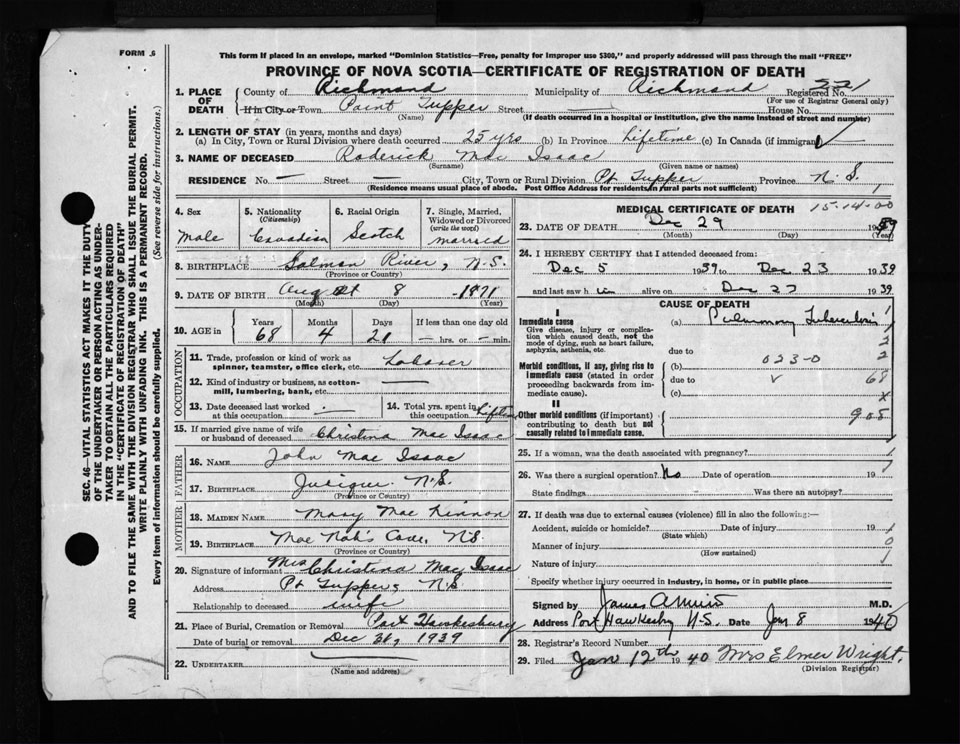 FORM 6
This form if placed in an envelope, marked "Dominion Statistics—Free, penalty for improper use $300," and properly addressed will pass through the mail "FREE"
PROVINCE OF NOVA SCOTIA—CERTIFICATE OF REGISTRATION OF DEATH
SEC. 46—VITAL STATISTICS ACT MAKES IT THE DUTY
OF THE UNDERTAKER OR PERSON ACTING AS UNDER-
TAKER TO OBTAIN ALL THE PARTICULARS REQUIRED
IN THE "CERTIFICATE OF REGISTRATION OF DEATH"
AND TO FILE THE SAME WITH THE DIVISION REGISTRAR WHO SHALL ISSUE THE BURIAL PERMIT.
WRITE PLAINLY WITH UNFADING INK. THIS IS A PERMANENT RECORD.
Every item of information should be carefully supplied. (See reverse side for instructions.)
1. PLACE OF DEATH County of Richmond Municipality of Richmond Registered No. 221
(For use of Registrar General only)
If in City or Town Point Tupper Street — House No.
(Name) (If death occurred in a hospital or institution, give the name instead of street and number)
2. LENGTH OF STAY (in years, months and days)
(a) In City, Town or Rural Division where death occurred 25 yrs (b) In Province Lifetime (c) In Canada (if immigrant)
3. NAME OF DECEASED Roderick Mac Isaac
(Surname) (Given name or names)
RESIDENCE No. — Street — City, Town or Rural Division Pt Tupper Province N. S.
(Residence means usual place of abode. Post Office Address for residents in rural parts not sufficient)
4. Sex Male
5. Nationality (Citizenship) Canadian
6. Racial Origin Scotch
7. Single, Married, Widowed or Divorced (write the word) married
8. BIRTHPLACE Salmon River, N.S.
(Province or Country)
9. DATE OF BIRTH August 8 1871
(Month) (Day) (Year)
10. AGE in Years 68 Months 4 Days 21 If less than one day old — hrs. or — min.
OCCUPATION
11. Trade, profession or kind of work as spinner, teamster, office clerk, etc. Laborer
12. Kind of industry or business, as cotton-mill, lumbering, bank, etc. —
13. Date deceased last worked at this occupation —
14. Total yrs. spent in this occupation Lifetime
15. If married give name of wife or husband of deceased Christina Mac Isaac
FATHER
16. NAME John Mac Isaac
17. BIRTHPLACE Judique N.S.
(Province or Country)
MOTHER
18. MAIDEN NAME Mary Mac Kinnon
19. BIRTHPLACE Mac Nab's Cove, N.S.
(Province or Country)
20. Signature of informant Mrs Christina Mac Isaac
Address Pt Tupper, N.S
Relationship to deceased wife
21. Place of Burial, Cremation or Removal Port Hawkesbury
Date of burial or removal Dec 31, 1939
22. UNDERTAKER —
(Name and address)
MEDICAL CERTIFICATE OF DEATH 15-14-00
23. DATE OF DEATH Dec 29 1939
(Month) (Day) (Year)
24. I HEREBY CERTIFY that I attended deceased from:
Dec 5 1939 to Dec 23 1939
and last saw him alive on Dec 23 1939
CAUSE OF DEATH
I
Immediate cause (a) Pulmonary Tuberculosis
Give disease, injury or complication which caused death, not the mode of dying, such as heart failure, asphyxia, asthenia, etc.
due to
Morbid conditions, if any, giving rise to immediate cause (stated in order proceeding backwards from immediate cause).
(b) 023-0
due to 68
(c)
II
Other morbid conditions (if important) contributing to death but not causally related to immediate cause.
908
25. If a woman, was the death associated with pregnancy?
26. Was there a surgical operation? No Date of operation 19
State findings Was there an autopsy?
27. If death was due to external causes (violence) fill in also the following:—
Accident, suicide or homicide? Date of injury 19
(State which)
Manner of injury
(How sustained)
Nature of injury
Specify whether injury occurred in industry, in home, or in public place
Signed by James A Munro M.D.
Address Port Hawkesby N.S. Date Jan 8 1940
28. Registrar's Record Number
29. Filed Jan 12th 1940 Mrs Elmer Wright.
(Division Registrar)